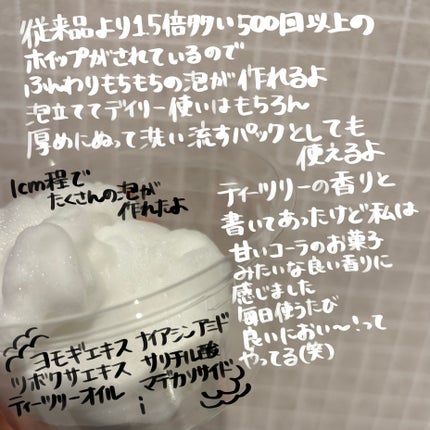 従来品より1.5倍多い500回以上の
ホイップがされているので
ふんわりもちもちの泡が作れるよ
泡立ててデイリー使いはもちろん
厚めにぬって洗い流すパックとしても
使えるよ
1cm程で
たくさんの泡が
作れたよ
ティーツリーの香りと
書いてあったけど私は
甘いコーラのお菓子
みたいな良い香りに
感じました
毎日使うたび
良いにおい〜!って
やってる(笑)
ヨモギエキス ナイアシンアミド
ツボクサエキス サリチル酸
ティーツリーオイル マデカソサイド